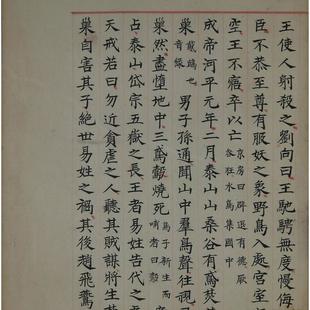 王使人射殺之劉向曰王馳騁無度慢侮
臣不恭至尊有服妖之象野鳥入處宮室
空王不寤卒以亡京房曰辟退有德厥咎狂水鳥集國中
成帝河平元年二月泰山山桑谷有鳶焚
巢鳶鴟也音緣男子孫通聞山中羣鳥聲往視
巢然盡墮地中三鳶鷇燒死鳥子新生而哺者曰鷇
占泰山岱宗五嶽之長王者易姓告代之
天戒若曰勿近貪虐之人聽其賊謀將生
巢自害其子絕世易姓之禍其後趙飛鷰